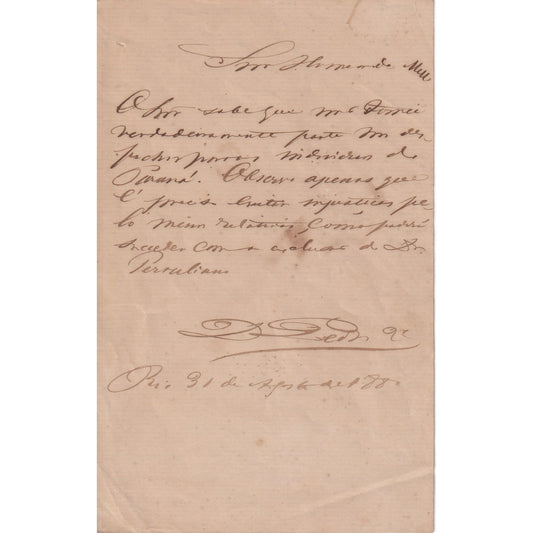 Snr Homem de Mello
O Snr sabe que não tomei
verdadeiramente parte nos des-
pachos para os indivíduos do
Paraná. Observo apenas que
é preciso evitar injustiças pe-
lo menos relativas, como poderá
suceder com a exclusão do Dr.
Tertuliano
D. Pedro 2º
Rio 31 de Agosto de 188